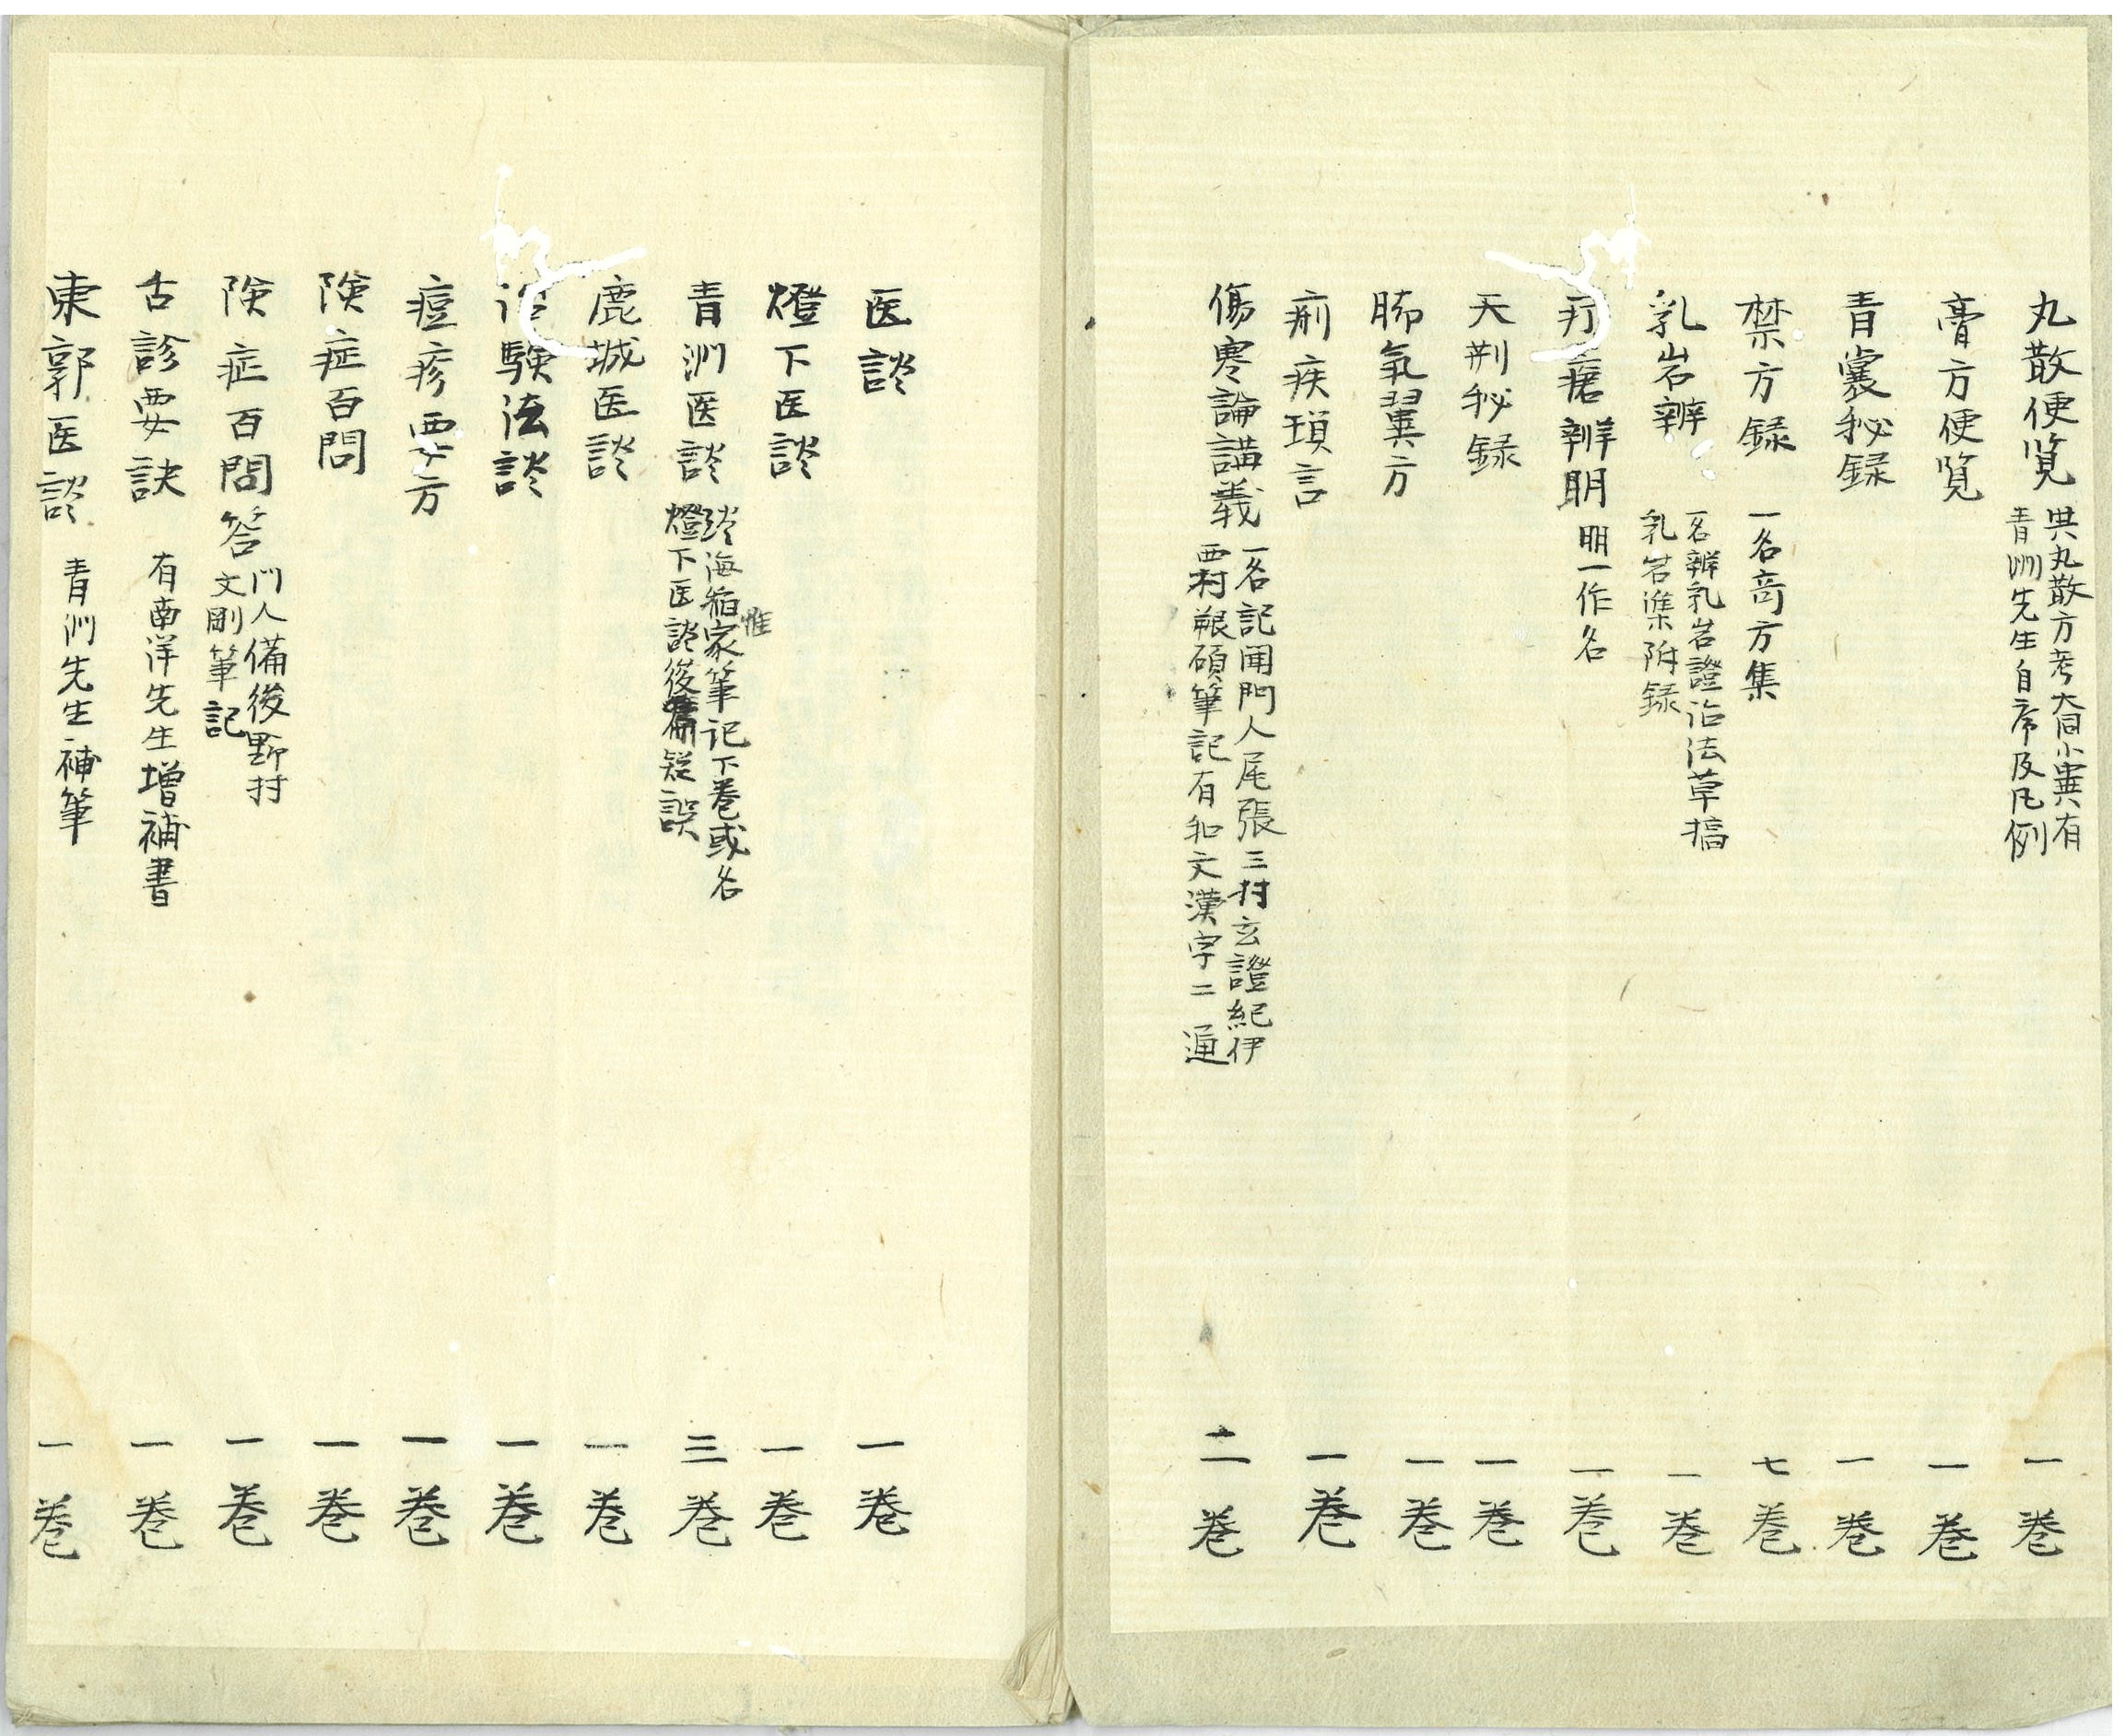 丸散便覧 共丸散方考大同小異有 一巻
青洲先生自序及凡例
膏方便覧 一巻
青嚢秘録 一巻
禁方録 一名奇方集 七巻
乳岩辨 一名辨乳岩證治法草稿 一巻
乳岩準附録
疔瘡辨明 明一作名 一巻
天刑秘録 一巻
脚氣翼方 一巻
痢疾瑣言 一巻
傷寒論講義 一名記聞門人尾張三村玄證紀伊 二巻
西村 碩筆記有和文漢字二通
医談 一巻
燈下医談 一巻
青洲医談 海 家筆记下巻或名 三巻
惟
燈下医談後篇 誤
鹿城医談 一巻
験法談 一巻
痘疹要方 一巻
険症百問 一巻
険症百問答 門人備後野村 一巻
文剛筆記
舌診要訣 有南洋先生増補書 一巻
東郭医談 青洲先生補筆 一巻